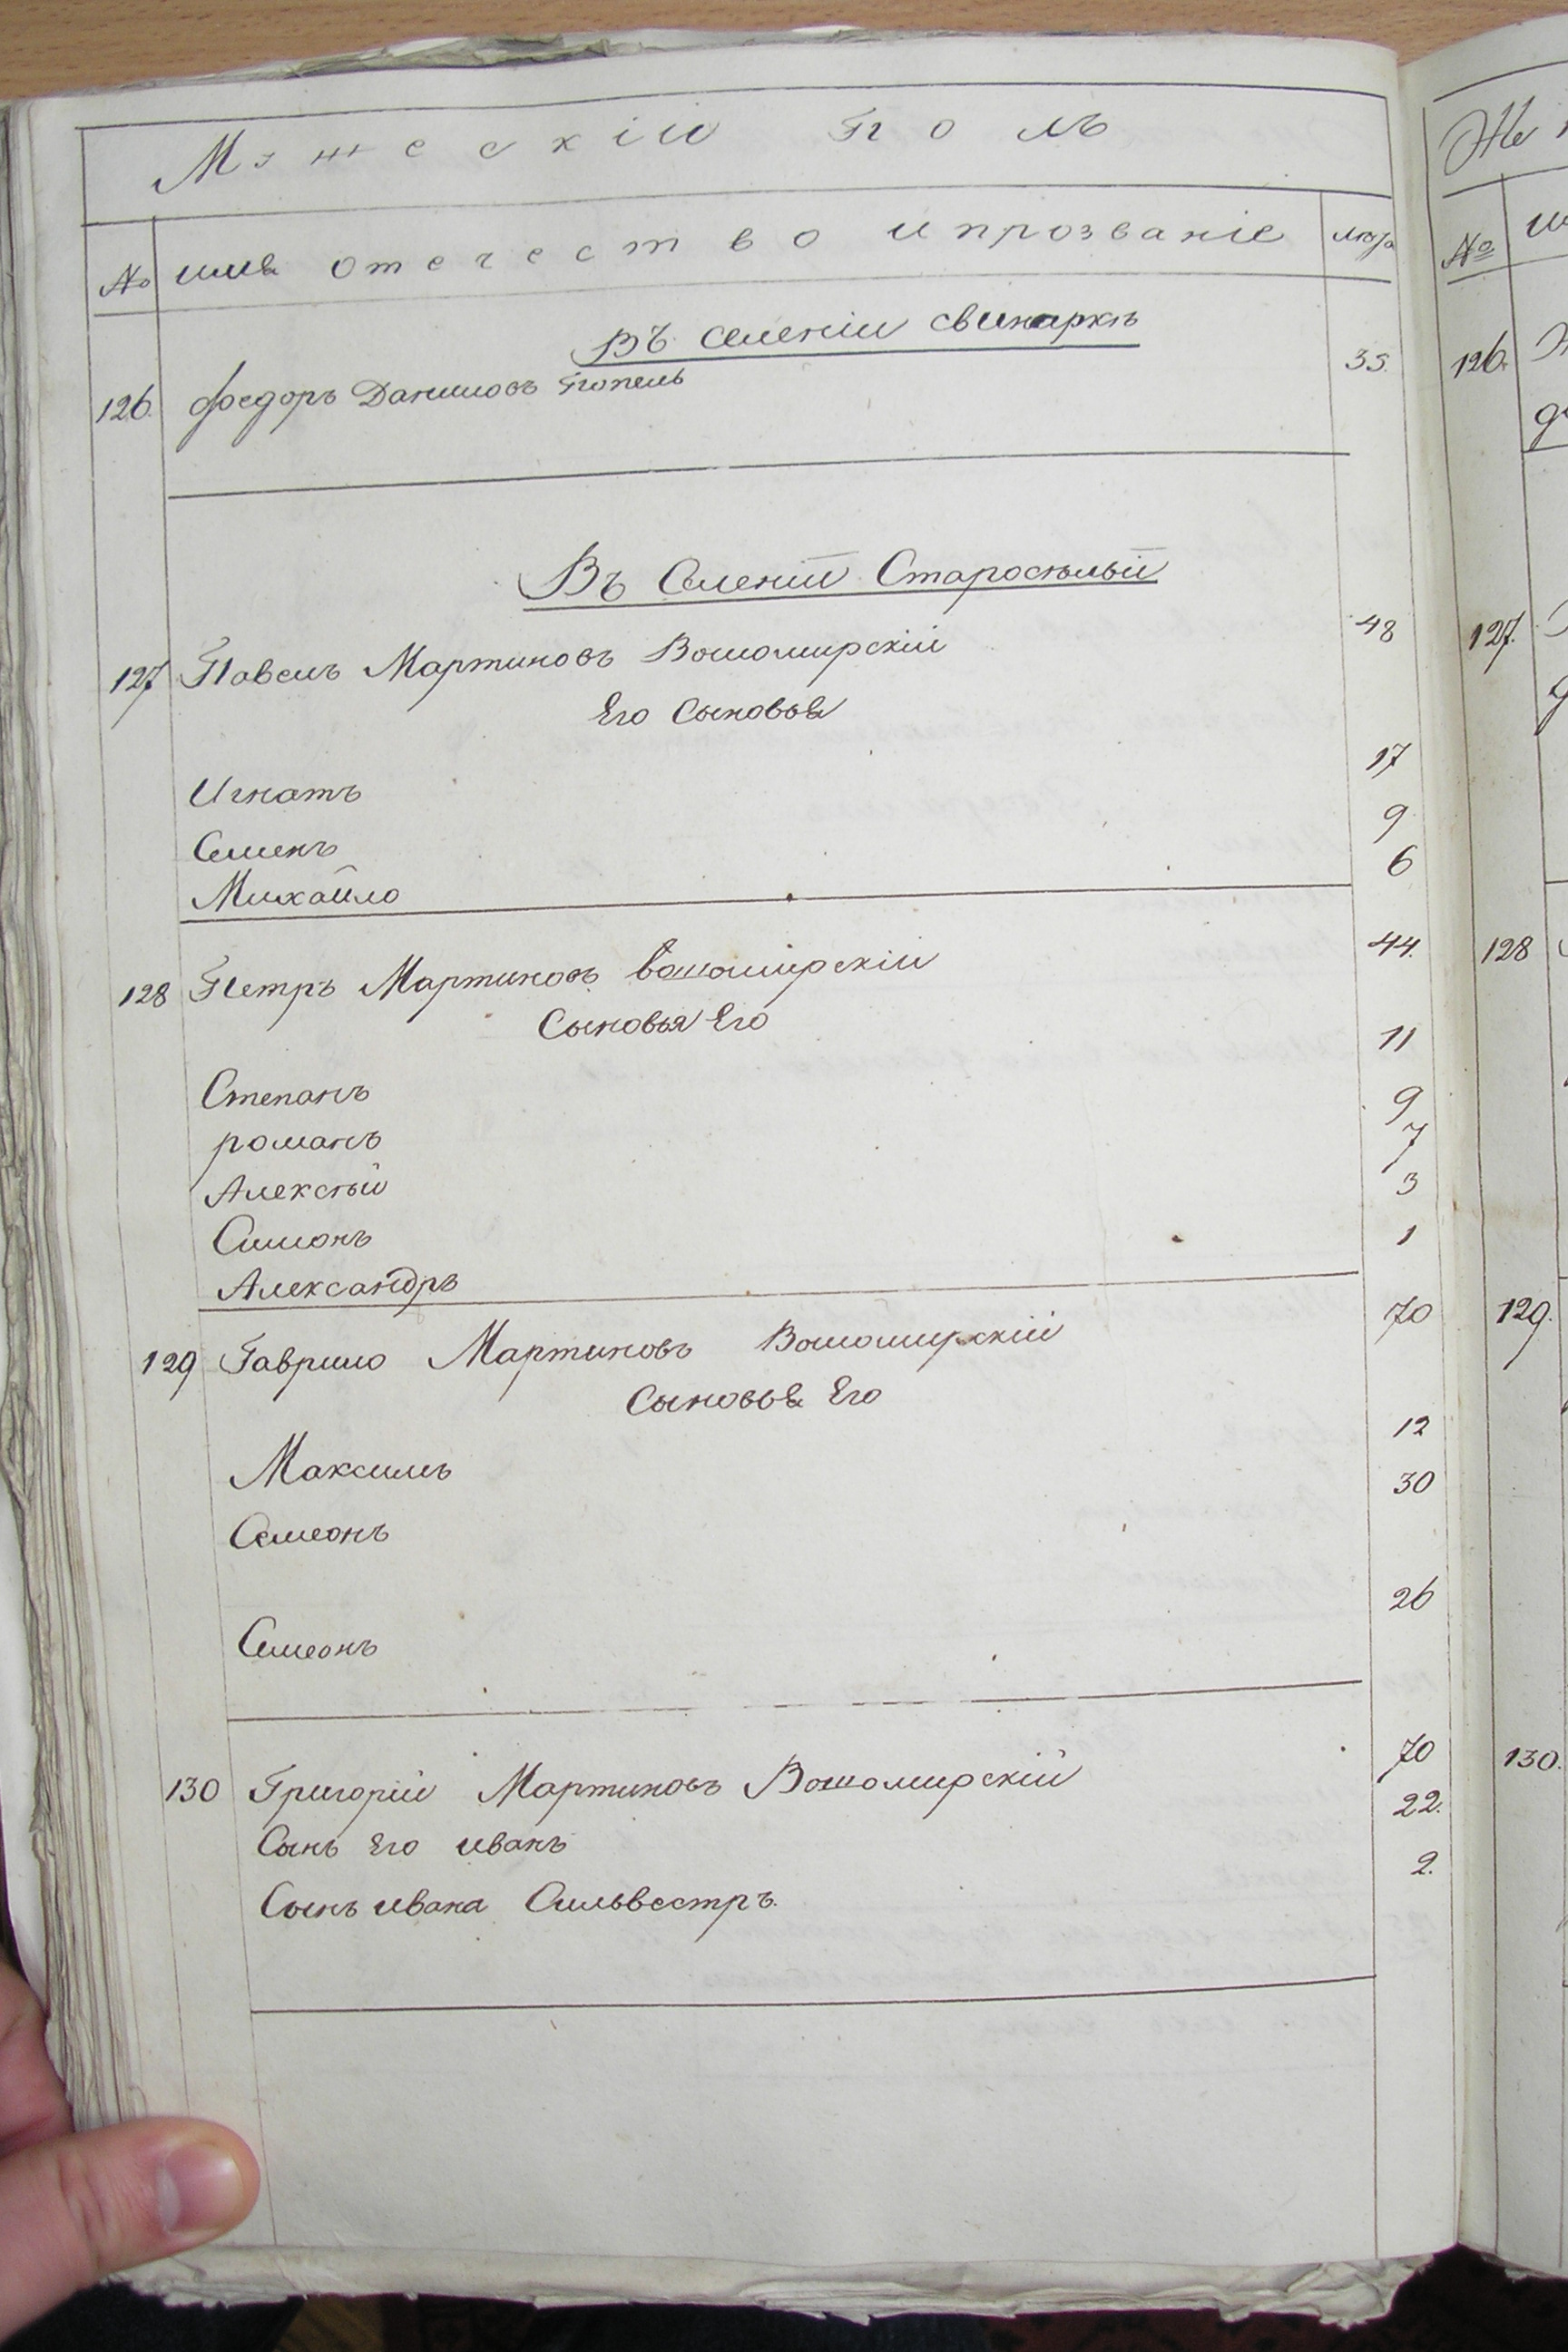 Мужескій Полъ
№ имя отечество и прозваніе лѣта
Въ селеніи свинаркѣ
126. федоръ Даниловъ Попель 35.
Въ Селеніи Старосѣльѣй
127 Павелъ Мартиновъ Воломирскій 48
Его Сыновья
Игнатъ 17
Семенъ 9
Михайло 6
128 Петръ Мартиновъ воломирскій 44.
Сыновья Его
Степанъ 11
романъ 9
Алексѣй 7
Симонъ 3
Александръ 1
129 Гаврило Мартиновъ Воломирскій 70
Сыновья Его
Максимъ 12
Семеонъ 30
Семеонъ 26
130 Григорій Мартиновъ Воломирскій 70
Сынъ Его иванъ 22.
Сынъ ивана Сильвестръ. 2.
Же
№
126.
127.
128
129.
130.